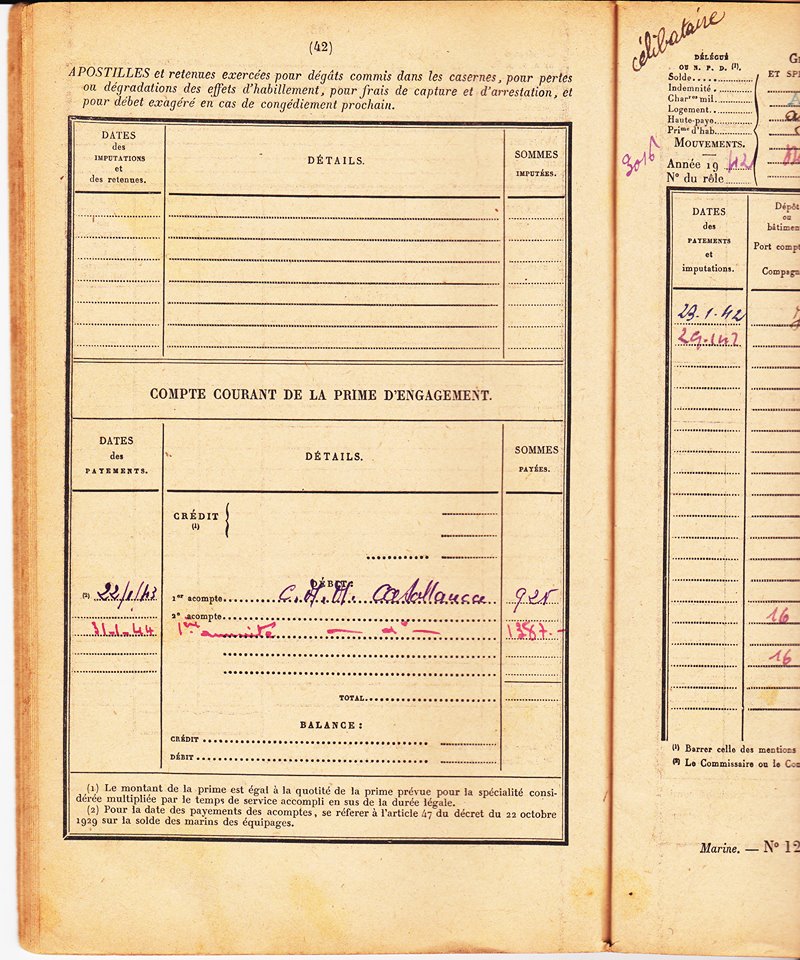 (42)
APOSTILLES et retenues exercées pour dégâts commis dans les casernes, pour pertes
ou dégradations des effets d'habillement, pour frais de capture et d'arrestation, et
pour débet exagéré en cas de congédiement prochain.
DATES
des
IMPUTATIONS
et
des retenues.
DÉTAILS.
SOMMES
IMPUTÉES.
COMPTE COURANT DE LA PRIME D'ENGAGEMENT.
DATES
des
PAYEMENTS.
DÉTAILS.
SOMMES
PAYÉES.
CRÉDIT
(1)
DÉBIT:
(2) 22/1/43 1er acompte C.H.H. Casablanca 925
2e acompte
31-1-44 1ère annuité — do — 1387.-
TOTAL.
BALANCE :
CRÉDIT
DÉBIT
(1) Le montant de la prime est égal à la quotité de la prime prévue pour la spécialité consi-
dérée multipliée par le temps de service accompli en sus de la durée légale.
(2) Pour la date des payements des acomptes, se référer à l'article 47 du décret du 22 octobre
1929 sur la solde des marins des équipages.
célibataire
DÉLÉGUÉ
OU N. P. D. (1).
Solde
Indemnité
Charres mil.
Logement
Haute-paye
Prime d'hab.
MOUVEMENTS.
3016
Année 19 42
N° du rôle
G
ET SP
DATES
des
PAYEMENTS
et
imputations.
Dépôt
ou
bâtimen
Port compt
Compagn
23-1-42
29-1-42
16
16
(1) Barrer celle des mentions
(2) Le Commissaire ou le Con
Marine. — N° 12